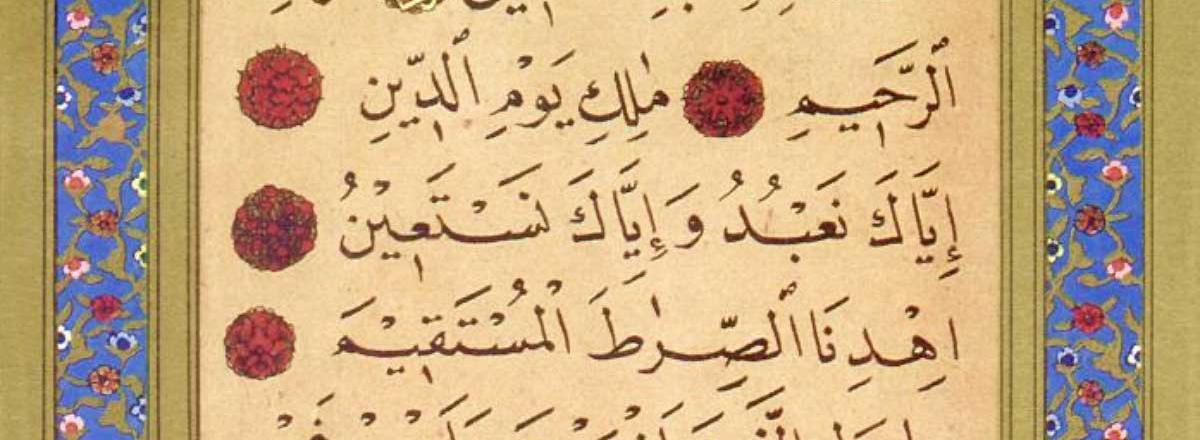 ٱلرَّحِيمِ مٰلِكِ يَوْمِ ٱلدِّينِ
إِيَّاكَ نَعْبُدُ وَإِيَّاكَ نَسْتَعِينُ
اِهْدِنَا ٱلصِّرٰطَ الْمُسْتَقِيْمَ